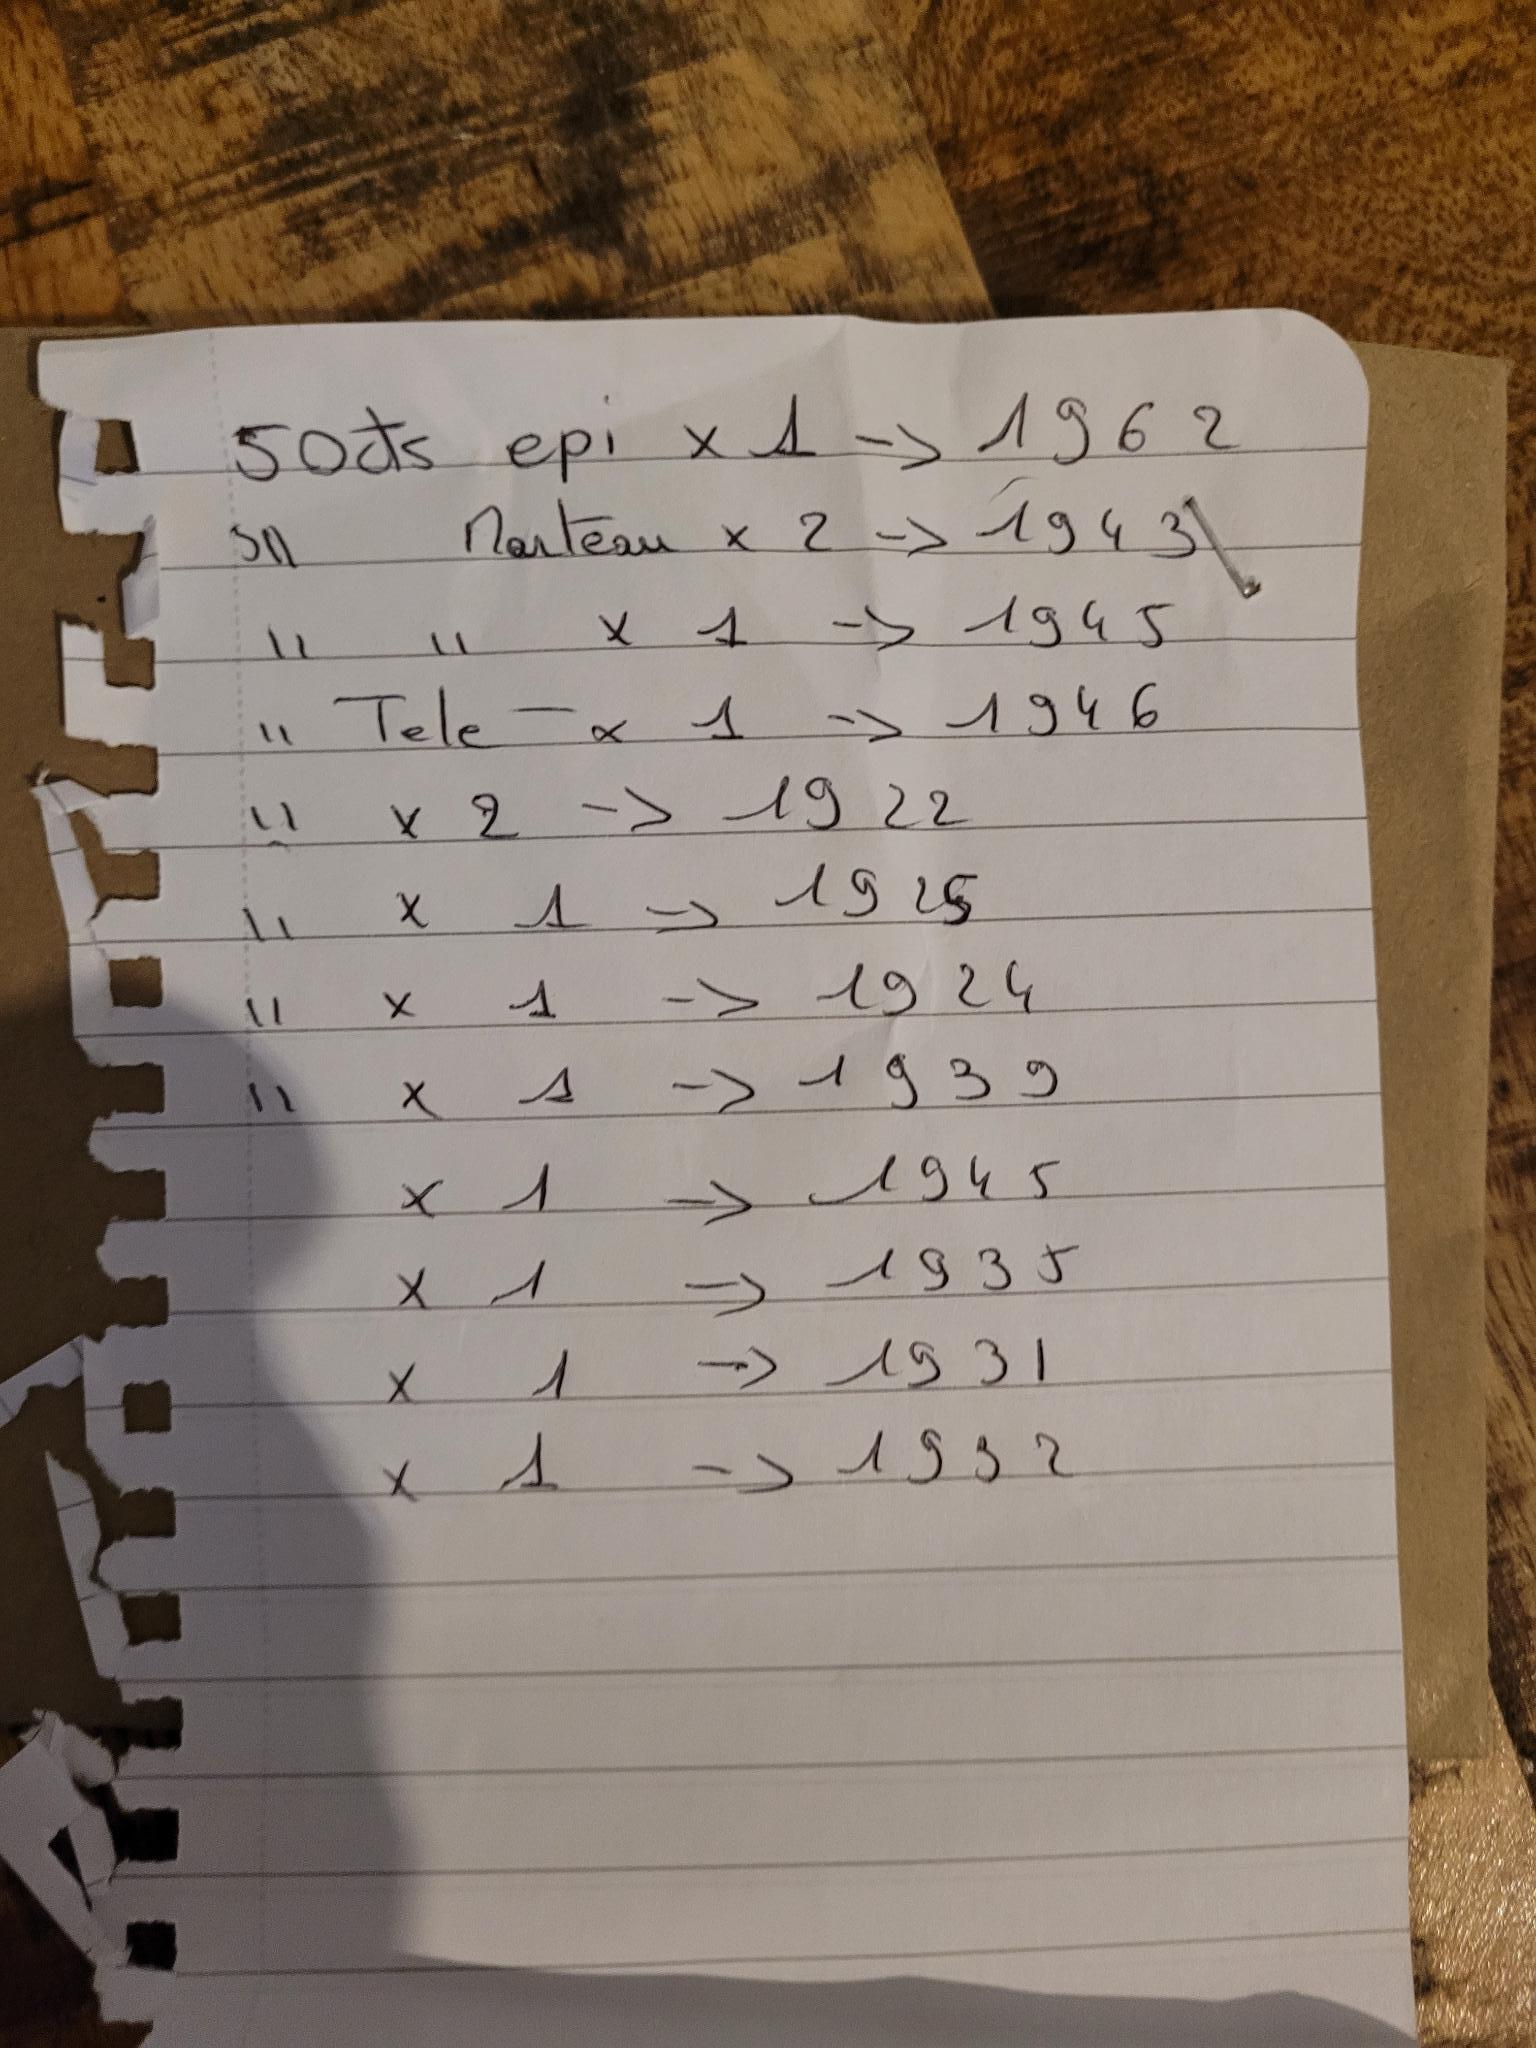 50cts epi x 1 -> 1962
" Marteau x 2 -> 1943
" " x 1 -> 1945
" Tele - x 1 -> 1946
" x 2 -> 1922
" x 1 -> 1925
" x 1 -> 1924
" x 1 -> 1939
x 1 -> 1945
x 1 -> 1935
x 1 -> 1931
x 1 -> 1932